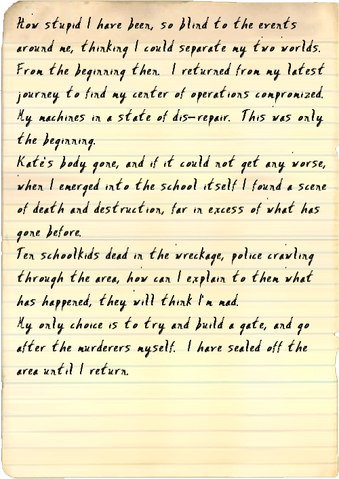 How stupid I have been, so blind to the events
around me, thinking I could separate my two worlds.
From the beginning then. I returned from my latest
journey to find my center of operations compromized.
My machines in a state of dis-repair. This was only
the beginning.
Kate's body gone, and if it could not get any worse,
when I emerged into the school itself I found a scene
of death and destruction, far in excess of what has
gone before.
Ten schoolkids dead in the wreckage, police crawling
through the area, how can I explain to them what
has happened, they will think I'm mad.
My only choice is to try and build a gate, and go
after the murderers myself. I have sealed off the
area until I return.